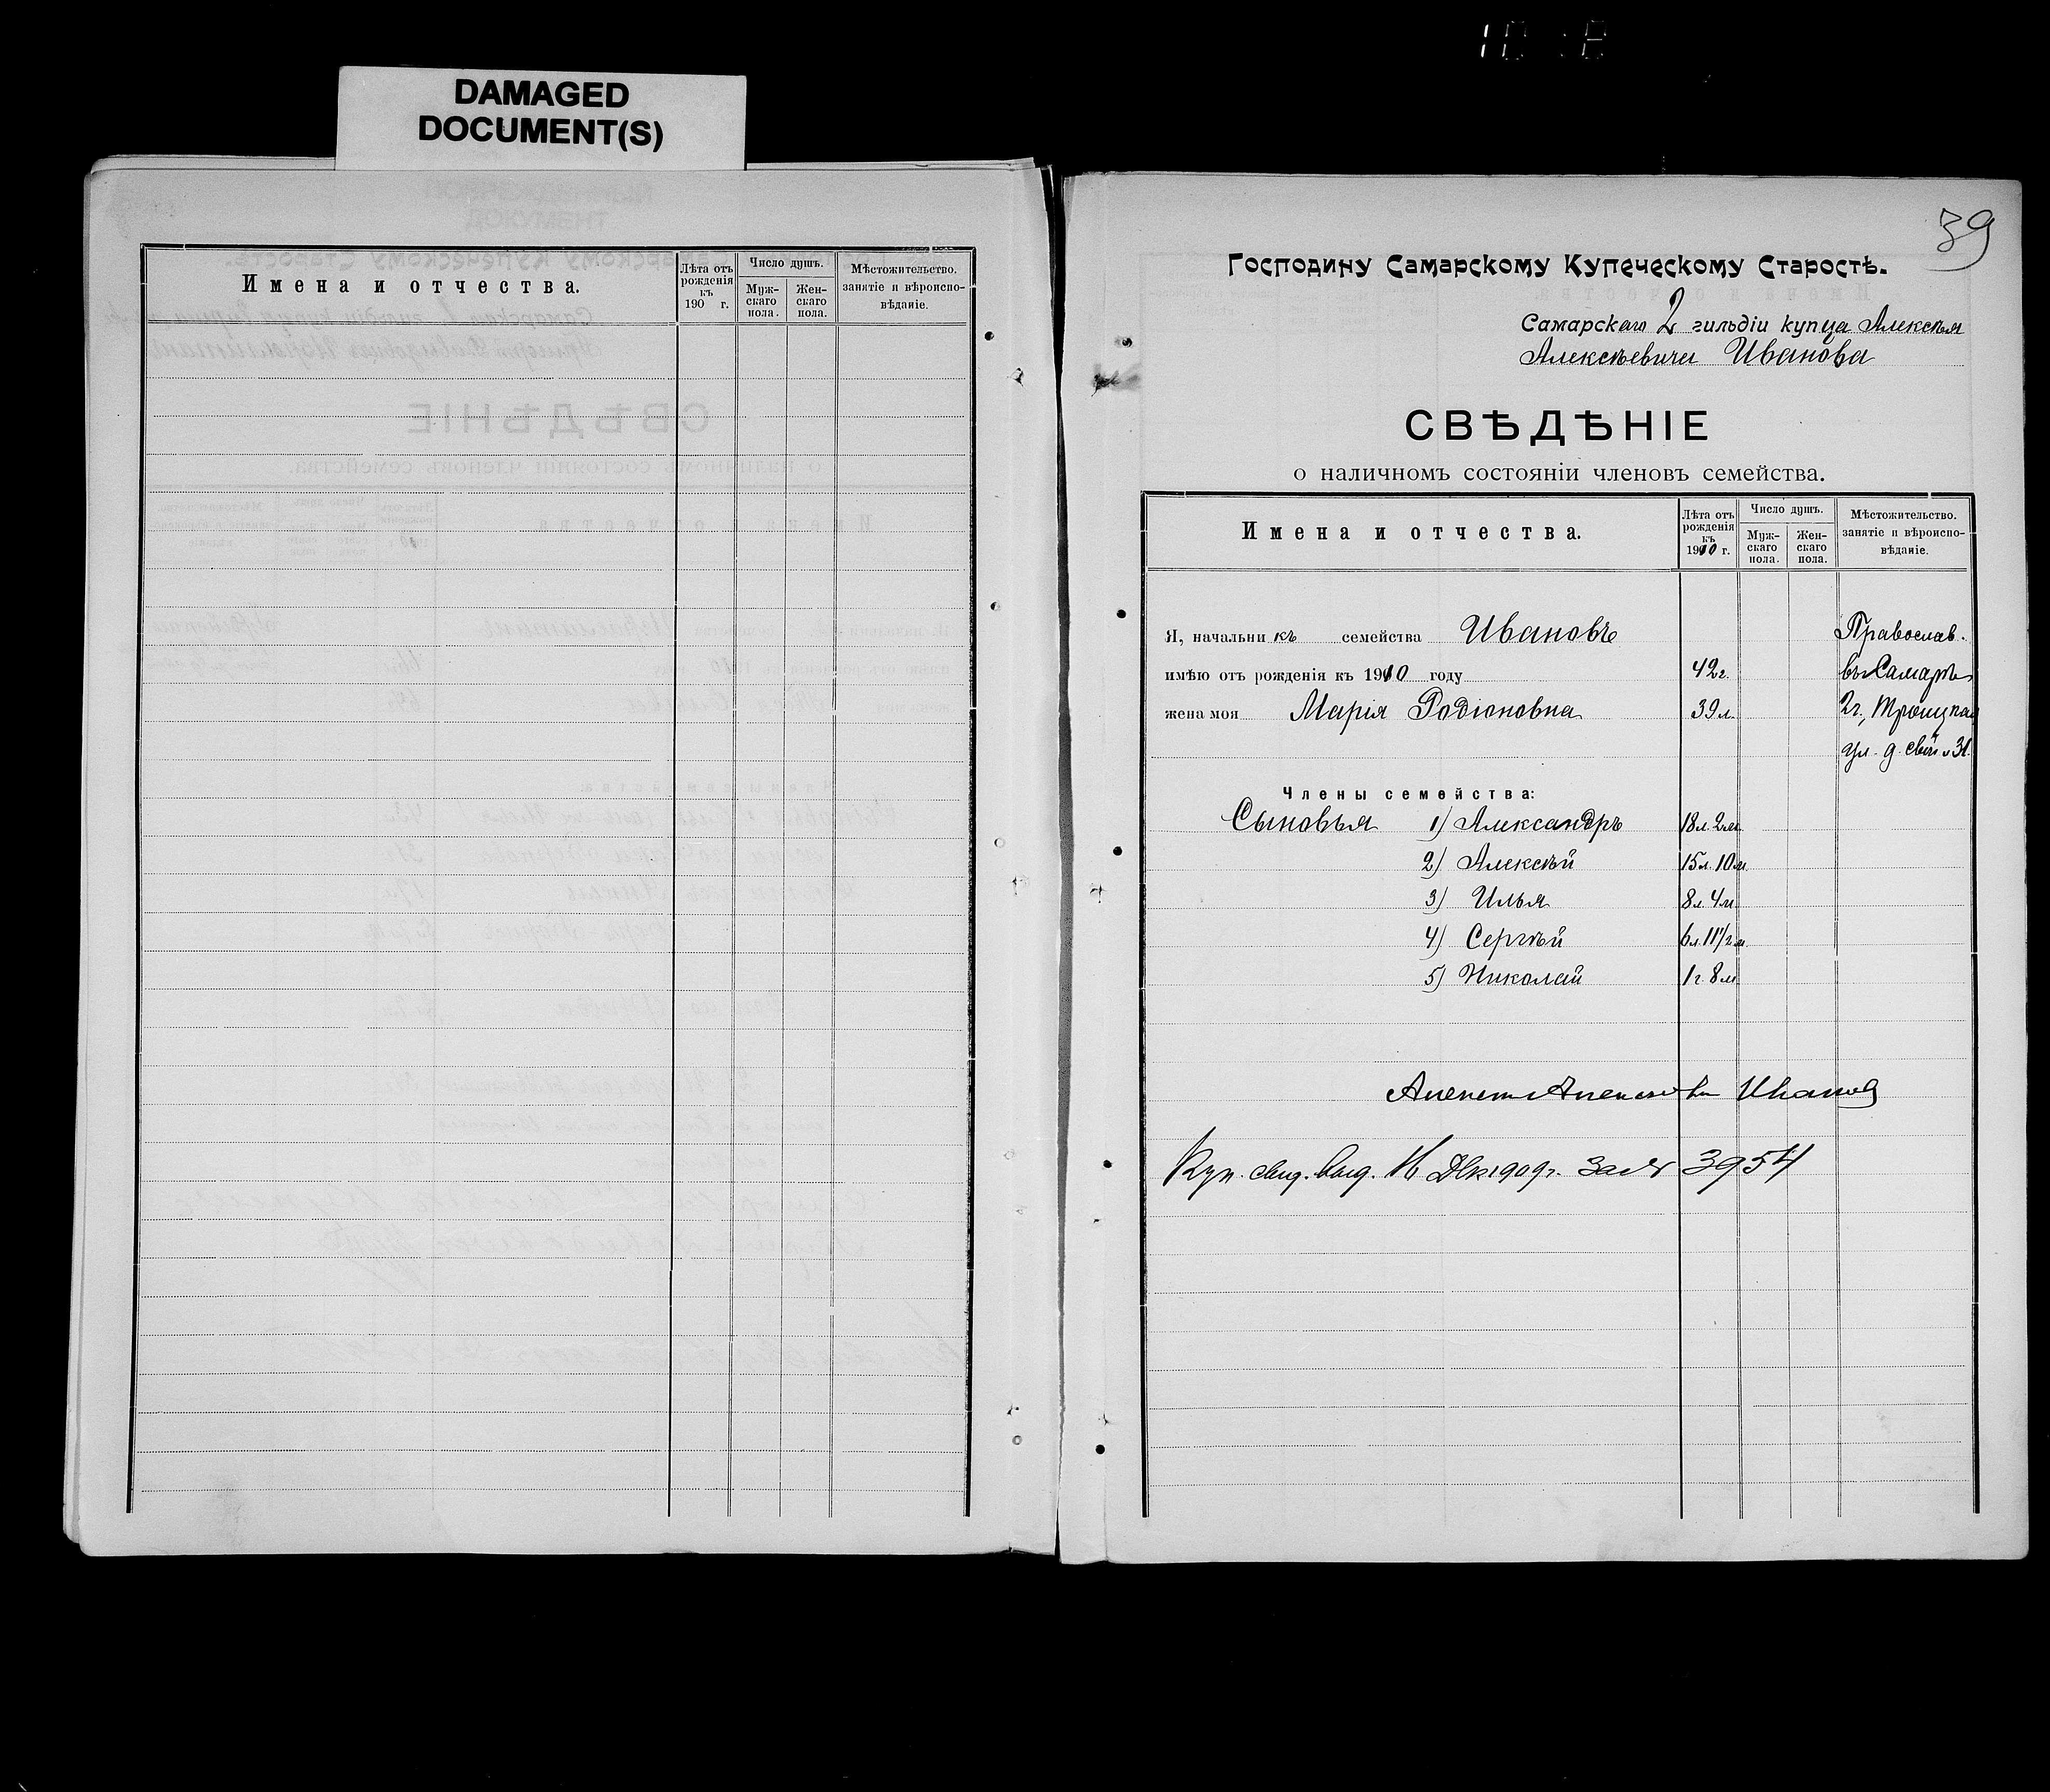 DAMAGED
DOCUMENT(S)
Имена и отчества.
Лѣта отъ рожденія къ 190 г.
Число душъ.
Муж-скаго пола.
Жен-скаго пола.
Мѣстожительство. занятіе и вѣроиспо-вѣданіе.
39
Господину Самарскому Купеческому Старостѣ.
Самарскаго 2 гильдіи купца Алексѣя
Алексѣевича Иванова
СВѢДѢНІЕ
о наличномъ состояніи членовъ семейства.
Имена и отчества.
Лѣта отъ рожденія къ 1910 г.
Число душъ.
Муж-скаго пола.
Жен-скаго пола.
Мѣстожительство. занятіе и вѣроиспо-вѣданіе.
Я, начальникъ семейства Ивановъ Православ.
имѣю отъ рожденія къ 1910 году 42 г. въ Самарѣ
жена моя Марія Родіоновна 39 л. 2 ч., Троицкая
ул. д.
Члены семейства:
Сыновья 1) Александръ 18 л. 2 м.
2) Алексѣй 15 л. 10 м.
3) Илья 8 л. 4 м.
4) Сергѣй 6 л. 11 1/2 м.
5) Николай 1 г. 8 м.
Алексей Алексеевич Иванов
Куп. свид. выд. Дек 1909 г. за № 3954